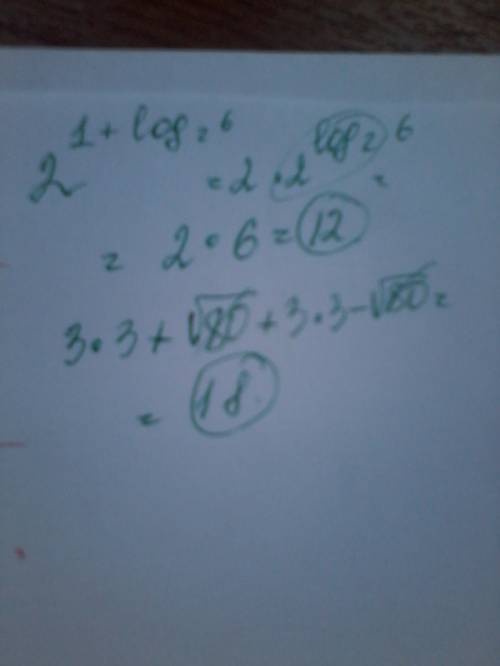 2^{1 + log₂ 6} = 2 · 2^{log₂ 6} =
= 2 · 6 = 12
3 · 3 + √80 + 3 · 3 - √80 =
= 18